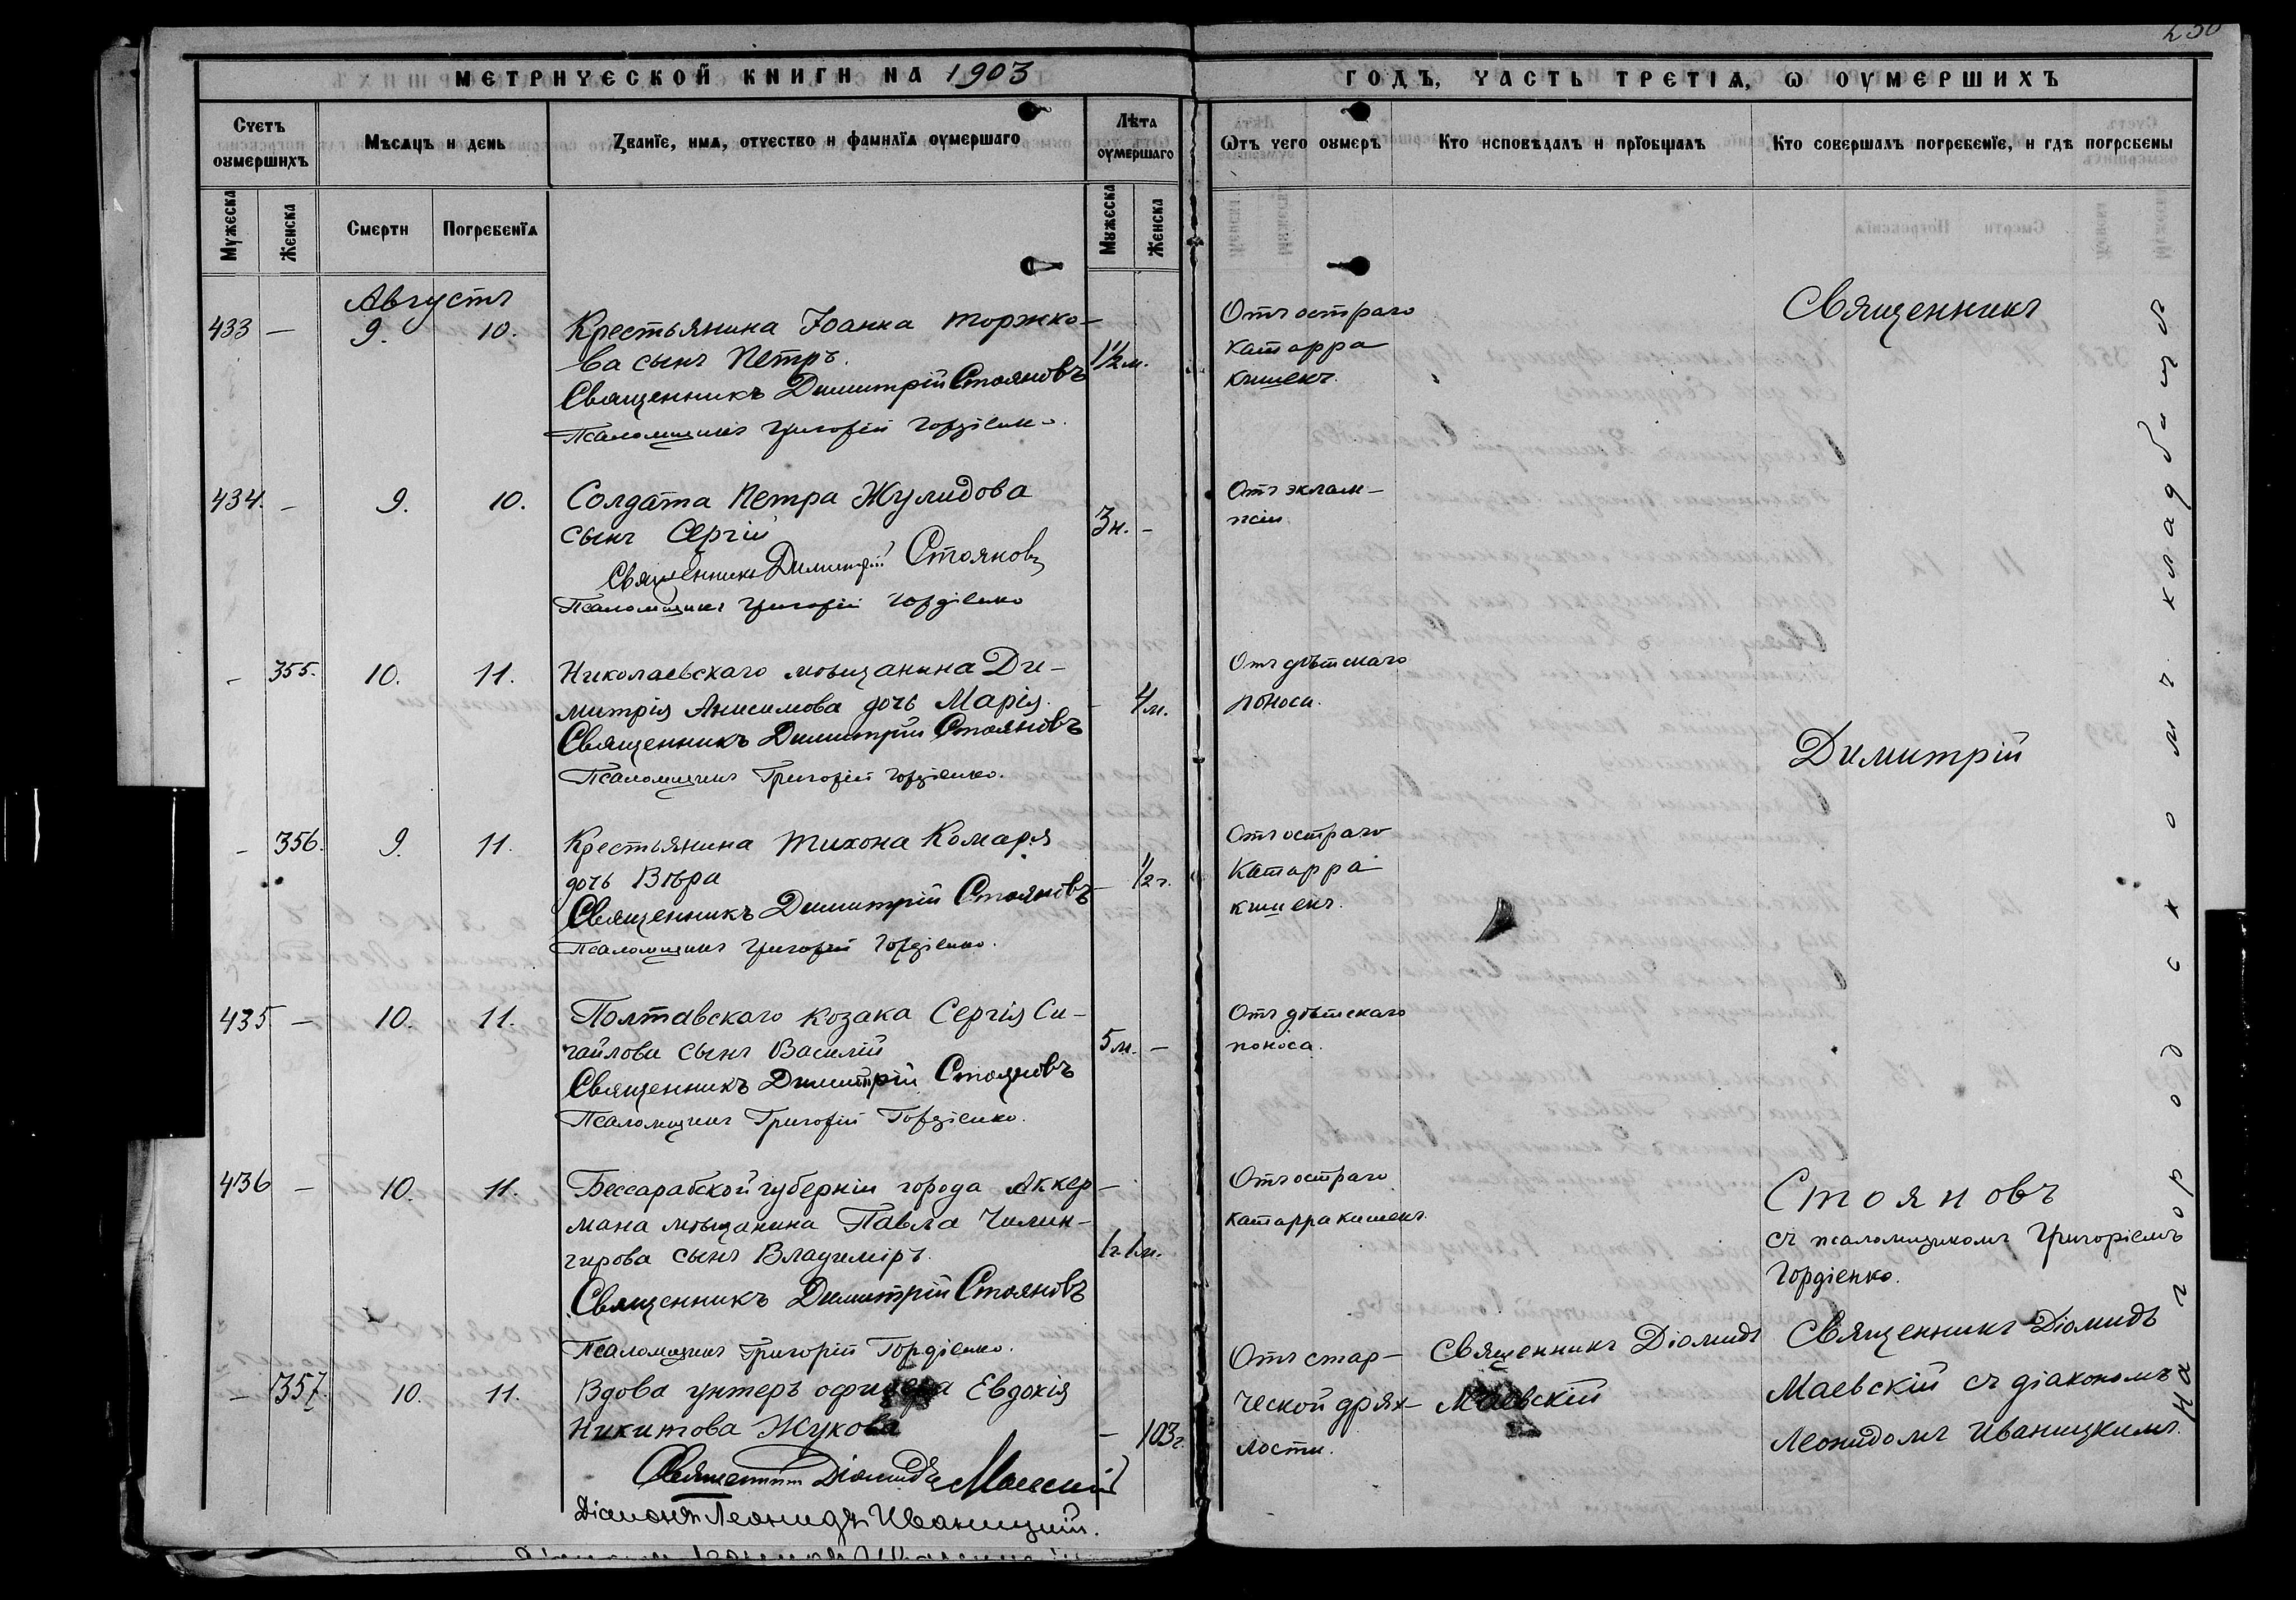 250
МЕТРИЧЕСКОЙ КНИГИ НА 1903
ГОДЪ, ЧАСТЬ ТРЕТІѦ, Ѡ ОУМЕРШИХЪ
Счетъ оумершихъ
Мѣсѧцъ и день
Званїе, имѧ, отчество и фамилїѧ оумершаго
Лѣта оумершаго
Ѿтъ чего оумеръ
Кто исповѣдалъ и прїобщалъ
Кто совершалъ погребенїе, и гдѣ погребены
Мужеска
Женска
Смерти
Погребенїѧ
Мужеска
Женска
Августъ
433 — 9. 10. Крестьянина Іоанна Торжко-
ва сынъ Петръ. 1½ м.
Священникъ Димитрій Стояновъ
Псаломщикъ Григорій Гордіенко.
Отъ остраго
катарра
кишекъ.
434. — 9. 10. Солдата Петра Жулидова
сынъ Сергій 3 н. —
Священникъ Димитрій Стояновъ
Псаломщикъ Григорій Гордіенко
Отъ эклам-
псіи
— 355. 10. 11. Николаевскаго мѣщанина Ди-
митрія Анисимова дочь Марія. — 4 м.
Священникъ Димитрій Стояновъ
Псаломщикъ Григорій Гордіенко.
Отъ дѣтскаго
поноса.
— 356. 9. 11. Крестьянина Тихона Комаря
дочь Вѣра — ½ г.
Священникъ Димитрій Стояновъ
Псаломщикъ Григорій Гордіенко.
Отъ остраго
катарра
кишекъ.
435 — 10. 11. Полтавскаго козака Сергія Си-
гайлова сынъ Василій 5 м. —
Священникъ Димитрій Стояновъ
Псаломщикъ Григорій Гордіенко.
Отъ дѣтскаго
поноса.
436 — 10. 11. Бессарабской губерніи города Аккер-
мана мѣщанина Павла Чилин-
гирова сынъ Владиміръ. 1 г. 1 м.
Священникъ Димитрій Стояновъ
Псаломщикъ Григорій Гордіенко.
Отъ остраго
катарра кишекъ.
Священникъ
Димитрій
Стояновъ
съ псаломщикомъ Григоріемъ
Гордіенко.
— 357. 10. 11. Вдова унтеръ офицера Евдокія
Никитова Жукова — 103 г.
Священникъ Діомидъ Маевскій
Діаконъ Леонидъ Иваницкій.
Отъ стар-
ческой дрях-
лости.
Священникъ Діомидъ
Маевскій
Священникъ Діомидъ
Маевскій съ діакономъ
Леонидомъ Иваницкимъ.
На городскомъ кладбищѣ